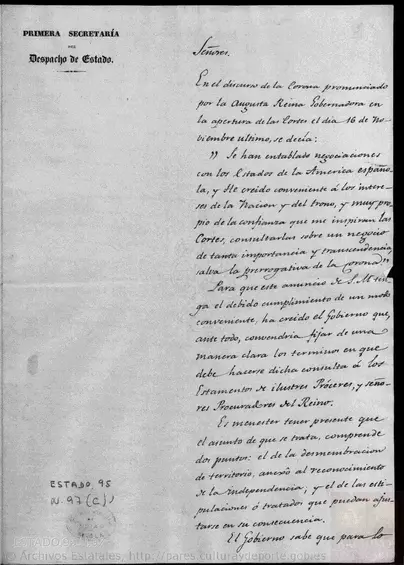 PRIMERA SECRETARÍA
DEL
Despacho de Estado.
Señores.
En el discurso de la Corona pronunciado
por la Augusta Reina Gobernadora en
la apertura de las Cortes el dia 16 de No-
viembre ultimo, se decía:
" Se han entablado negociaciones
con los Estados de la America españo-
la, y He creido conveniente á los intere-
ses de la Nacion y del trono, y muy pro-
pio de la confianza que me inspiran las
Cortes, consultarlas sobre un negocio
de tanta importancia y transcendencia
salva la prerrogativa de la Corona"
Para que este anuncio de S.M. ten-
ga el debido cumplimiento de un modo
conveniente, ha creido el Gobierno que,
ante todo, convendria fijar de una
manera clara los terminos en que
debe hacerse dicha consulta á los
Estamentos de ilustres Próceres, y seño-
res Procuradores del Reino.
Es menester tener presente que
el asunto de que se trata, comprende
dos puntos: el de la desmembracion
de territorio, anexo al reconocimiento
de la Independencia; y el de las esti-
pulaciones ó tratados que puedan ajus-
tarse en su consecuencia.
El Gobierno sabe que para lo
ESTADO, 95
N. 97 (C)
© Archivos Estatales, http://pares.culturaydeporte.gob.es